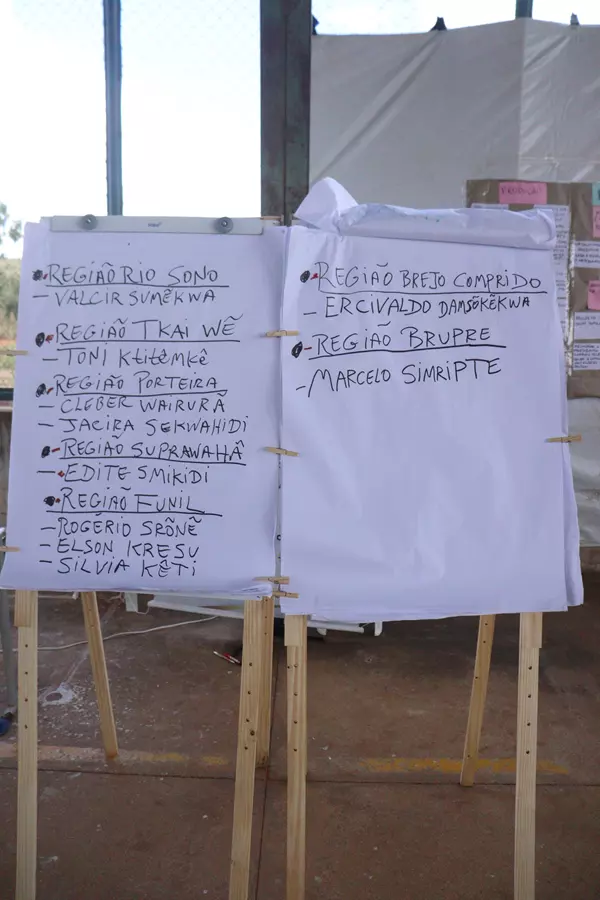 REGIÃO RIO SONO
– VALCIR SUMẼKWA
REGIÃO TKAI WẼ
– TONI KTITÊMKÊ
REGIÃO PORTEIRA
– CLEBER WAIRURÃ
– JACIRA SEKWAHIDI
REGIÃO SUPRAWAHÂ
– EDITE SMIKIDI
REGIÃO FUNIL
– ROGÉRIO SRÕNẼ
– ELSON KRESU
– SILVIA KÊTI
REGIÃO BREJO COMPRIDO
– ERCIVALDO DAMSÕKÊKWA
REGIÃO BRUPRE
– MARCELO SIMRIPTE